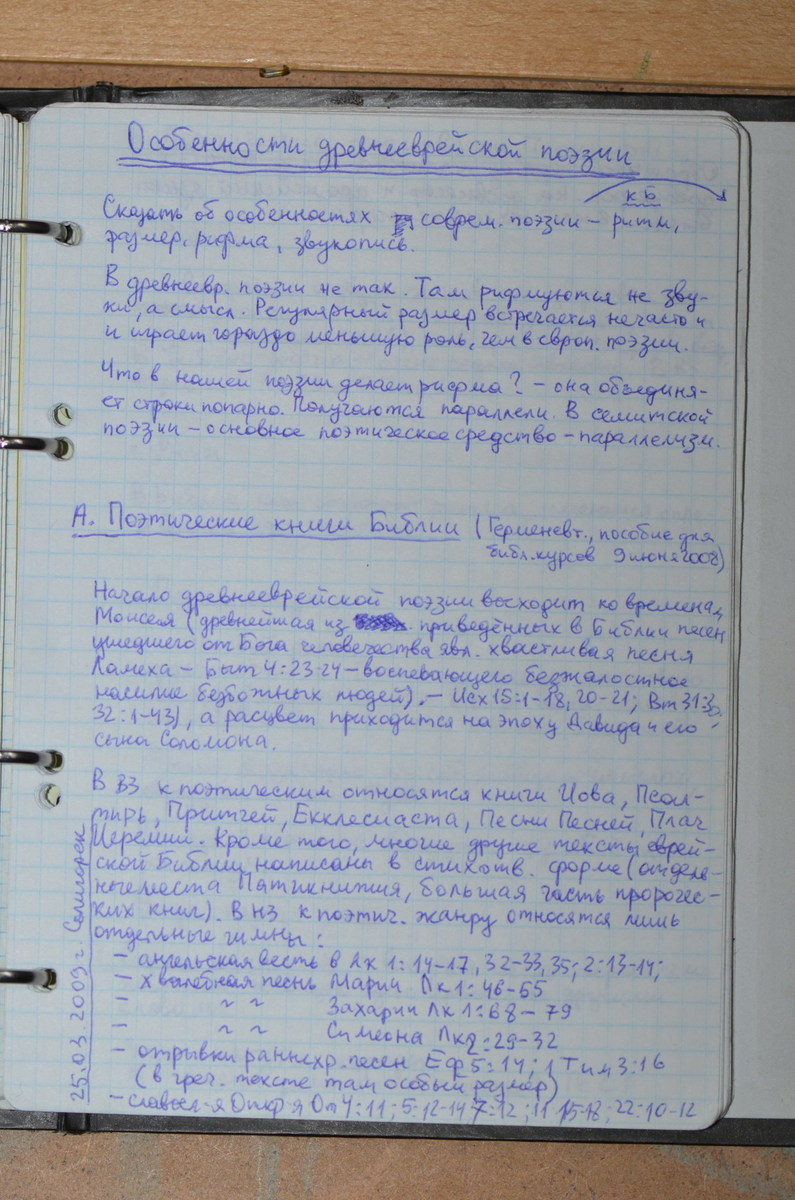 Особенности древнееврейской поэзии
к Б
Сказать об особенностях соврем. поэзии – ритм,
размер, рифма, звукопись.
В древнеевр. поэзии не так. Там рифмуются не зву-
ки, а смысл. Регулярный размер встречается нечасто и
и играет гораздо меньшую роль, чем в европ. поэзии.
Что в нашей поэзии делает рифма? – она объединя-
ет строки попарно. Получаются параллели. В семитской
поэзии – основное поэтическое средство – параллелизм.
А. Поэтические книги Библии (Герменевт., пособие для
библ. курсов 9 июня 2008)
Начало древнееврейской поэзии восходит ко временам
Моисея (древнейшая из приведённых в Библии песен
ушедшего от Бога человечества явл. хвастливая песня
Ламеха – Быт 4:23-24 – воспевающего безжалостное
насилие безбожных людей). – Исх 15:1-18, 20-21; Вт 31:30-
32:1-43), а расцвет приходится на эпоху Давида и его
сына Соломона.
В ВЗ к поэтическим относятся книги Иова, Псал-
тирь, Притчей, Екклесиаста, Песни Песней, Плач
Иеремии. Кроме того, многие другие тексты еврей-
ской Библии написаны в стихотв. форме (отдель-
ные места Пятикнижия, большая часть пророчес-
ких книг). В НЗ к поэтич. жанру относятся лишь
отдельные гимны:
– ангельская весть в Лк 1:14-17, 32-33, 35; 2:13-14;
– хвалебная песнь Марии Лк 1:46-55
– " " Захарии Лк 1:68-79
– " " Симеона Лк 2:29-32
– отрывки раннехр. песен Еф 5:14; 1 Тим 3:16
(в греч. тексте там особый размер)
– славосл-я Откр-я От 4:11; 5:12-14 7:12; 11 15-18; 22:10-12
25.03.2009 г. Солигорск